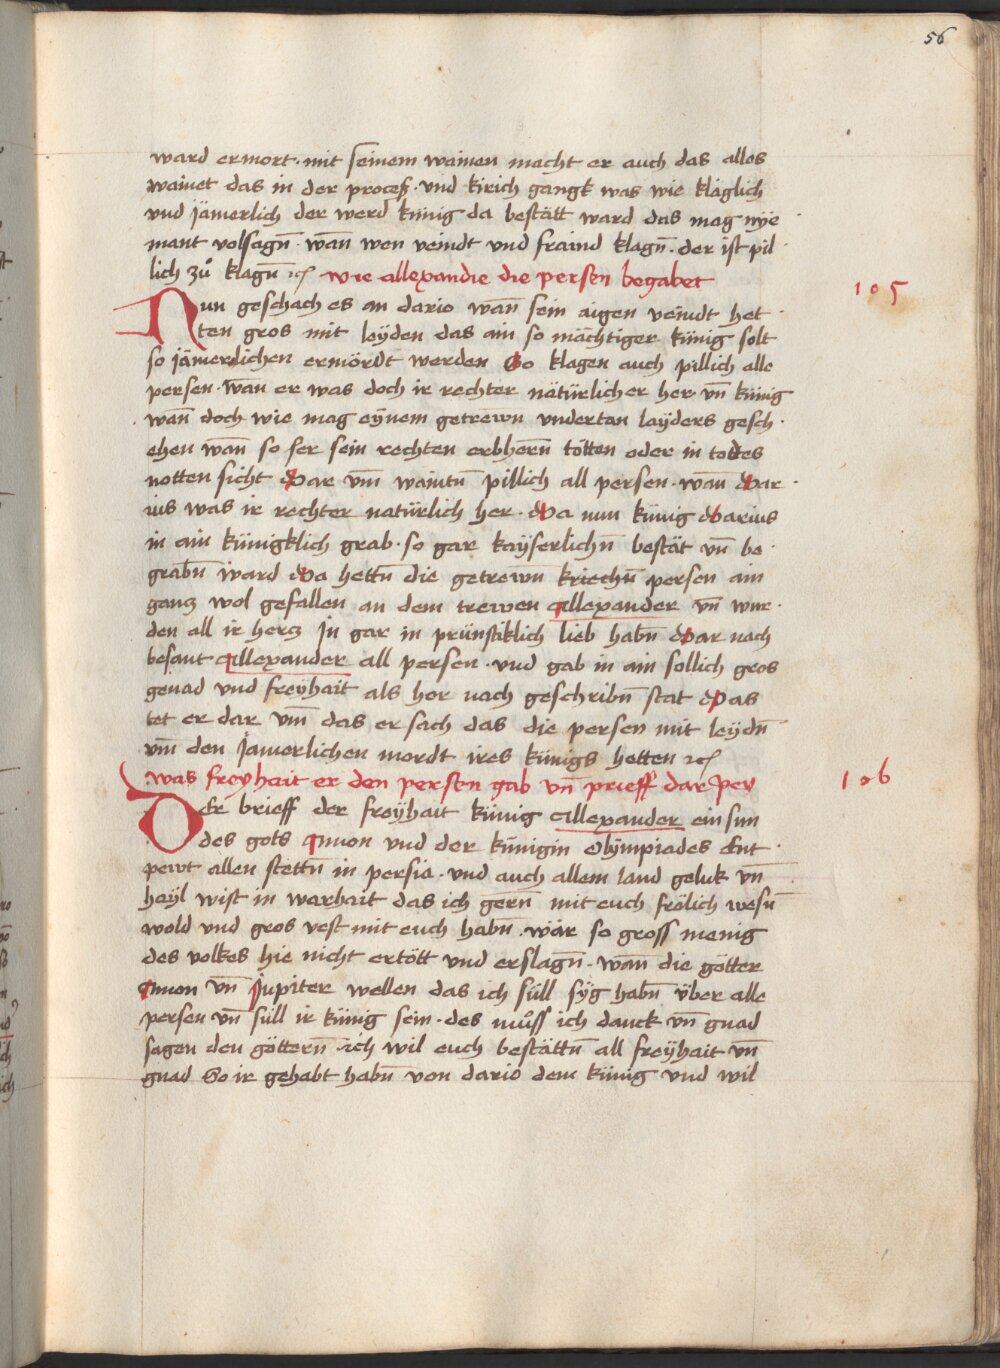 56
ward ermort · mit seinem wainen macht er auch das alles
wainet das in der proceß · vnd kirich gangk was wie kläglich
vnd jämerlich der werd künig da bestätt ward das mag nye
mant volsagn̄ · wan̄ wen veindt vnd fraind klagn̄ · der ist pil
lich zů klagn̄ ⁊c wie allexandie die persen begabet
105
Nun geschach es an dario wan̄ sein aigen veindt het
ten gros mit leÿden das ain so mächtiger künig solt
so jämerlichen ermördt werden So klagen auch pillich alle
persen · wan̄ er was doch ir rechter nätürlicher her · vn̄ künig
wan̄ doch wie mag eÿnem getrewn vndertan laÿders gesch
ehen wan̄ so ser sein rechten erbhern̄ tötten oder in todes
notten sicht Dar vm̄ waintn̄ pillich all persen · wan̄ Dar
ius was ir rechter natürlich her · Da nun künig Darius
in ain künigklich grab · so gar kaÿserlichn̄ bestät vn̄ be
grabn̄ ward Da hettn̄ die getrewn̄ kriechn̄ persen ain
ganz wol gefallen an dem trewen Allexander vn̄ wur
den all ir herz Jn gar in prünstiklich lieb habn̄ Dar nach
besant Allexander all persen · vnd gab in ain sollich gros
genad vnd freÿhait als her nach geschribn̄ stat Das
tet er dar vm̄ das er sach das die persen mit leÿdn̄
vm̄ den Jamerlichen mordt ires künigs hetten ⁊c
was freyhait er den persen gab vn̄ prieff dar per
106
Der brieff der freÿhait künig Allexander ein sun
des gots Amon vnd der künigin Olÿmpiades Ent
pewt allen stettn̄ in persia · vnd auch allem land geluk vn̄
haÿl wist in warhait das ich gern̄ mit euch frölich wesn̄
wold vnd gros vest mit euch habn̄ · wär so gross menig
des volkes hie nicht ertött vnd erslagn̄ · wan̄ die götter
Amon vn̄ Jupiter wellen das ich süll sÿg habn̄ über alle
persen vn̄ süll ir künig sein · des můss ich danck vn̄ gnad
sagen den göttern̄ · ich wil euch bestättn̄ all freÿhait vn̄
gnad So ir gehabt habn̄ von dario dem künig vnd wil